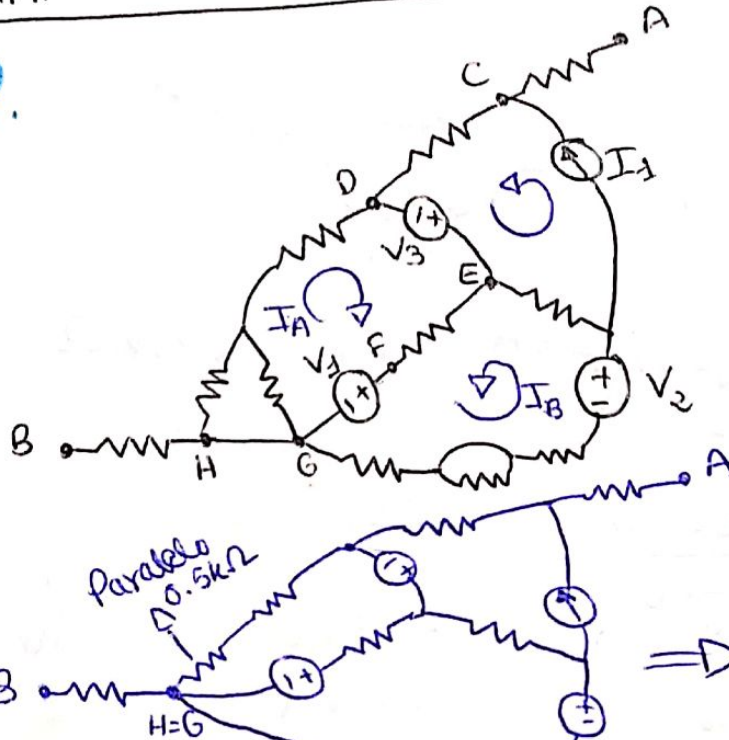 A
C
I1
D
V3
E
IA
F
V1
IB
V2
B
H
G
A
Paralelo
0.5kΩ
B
H=G